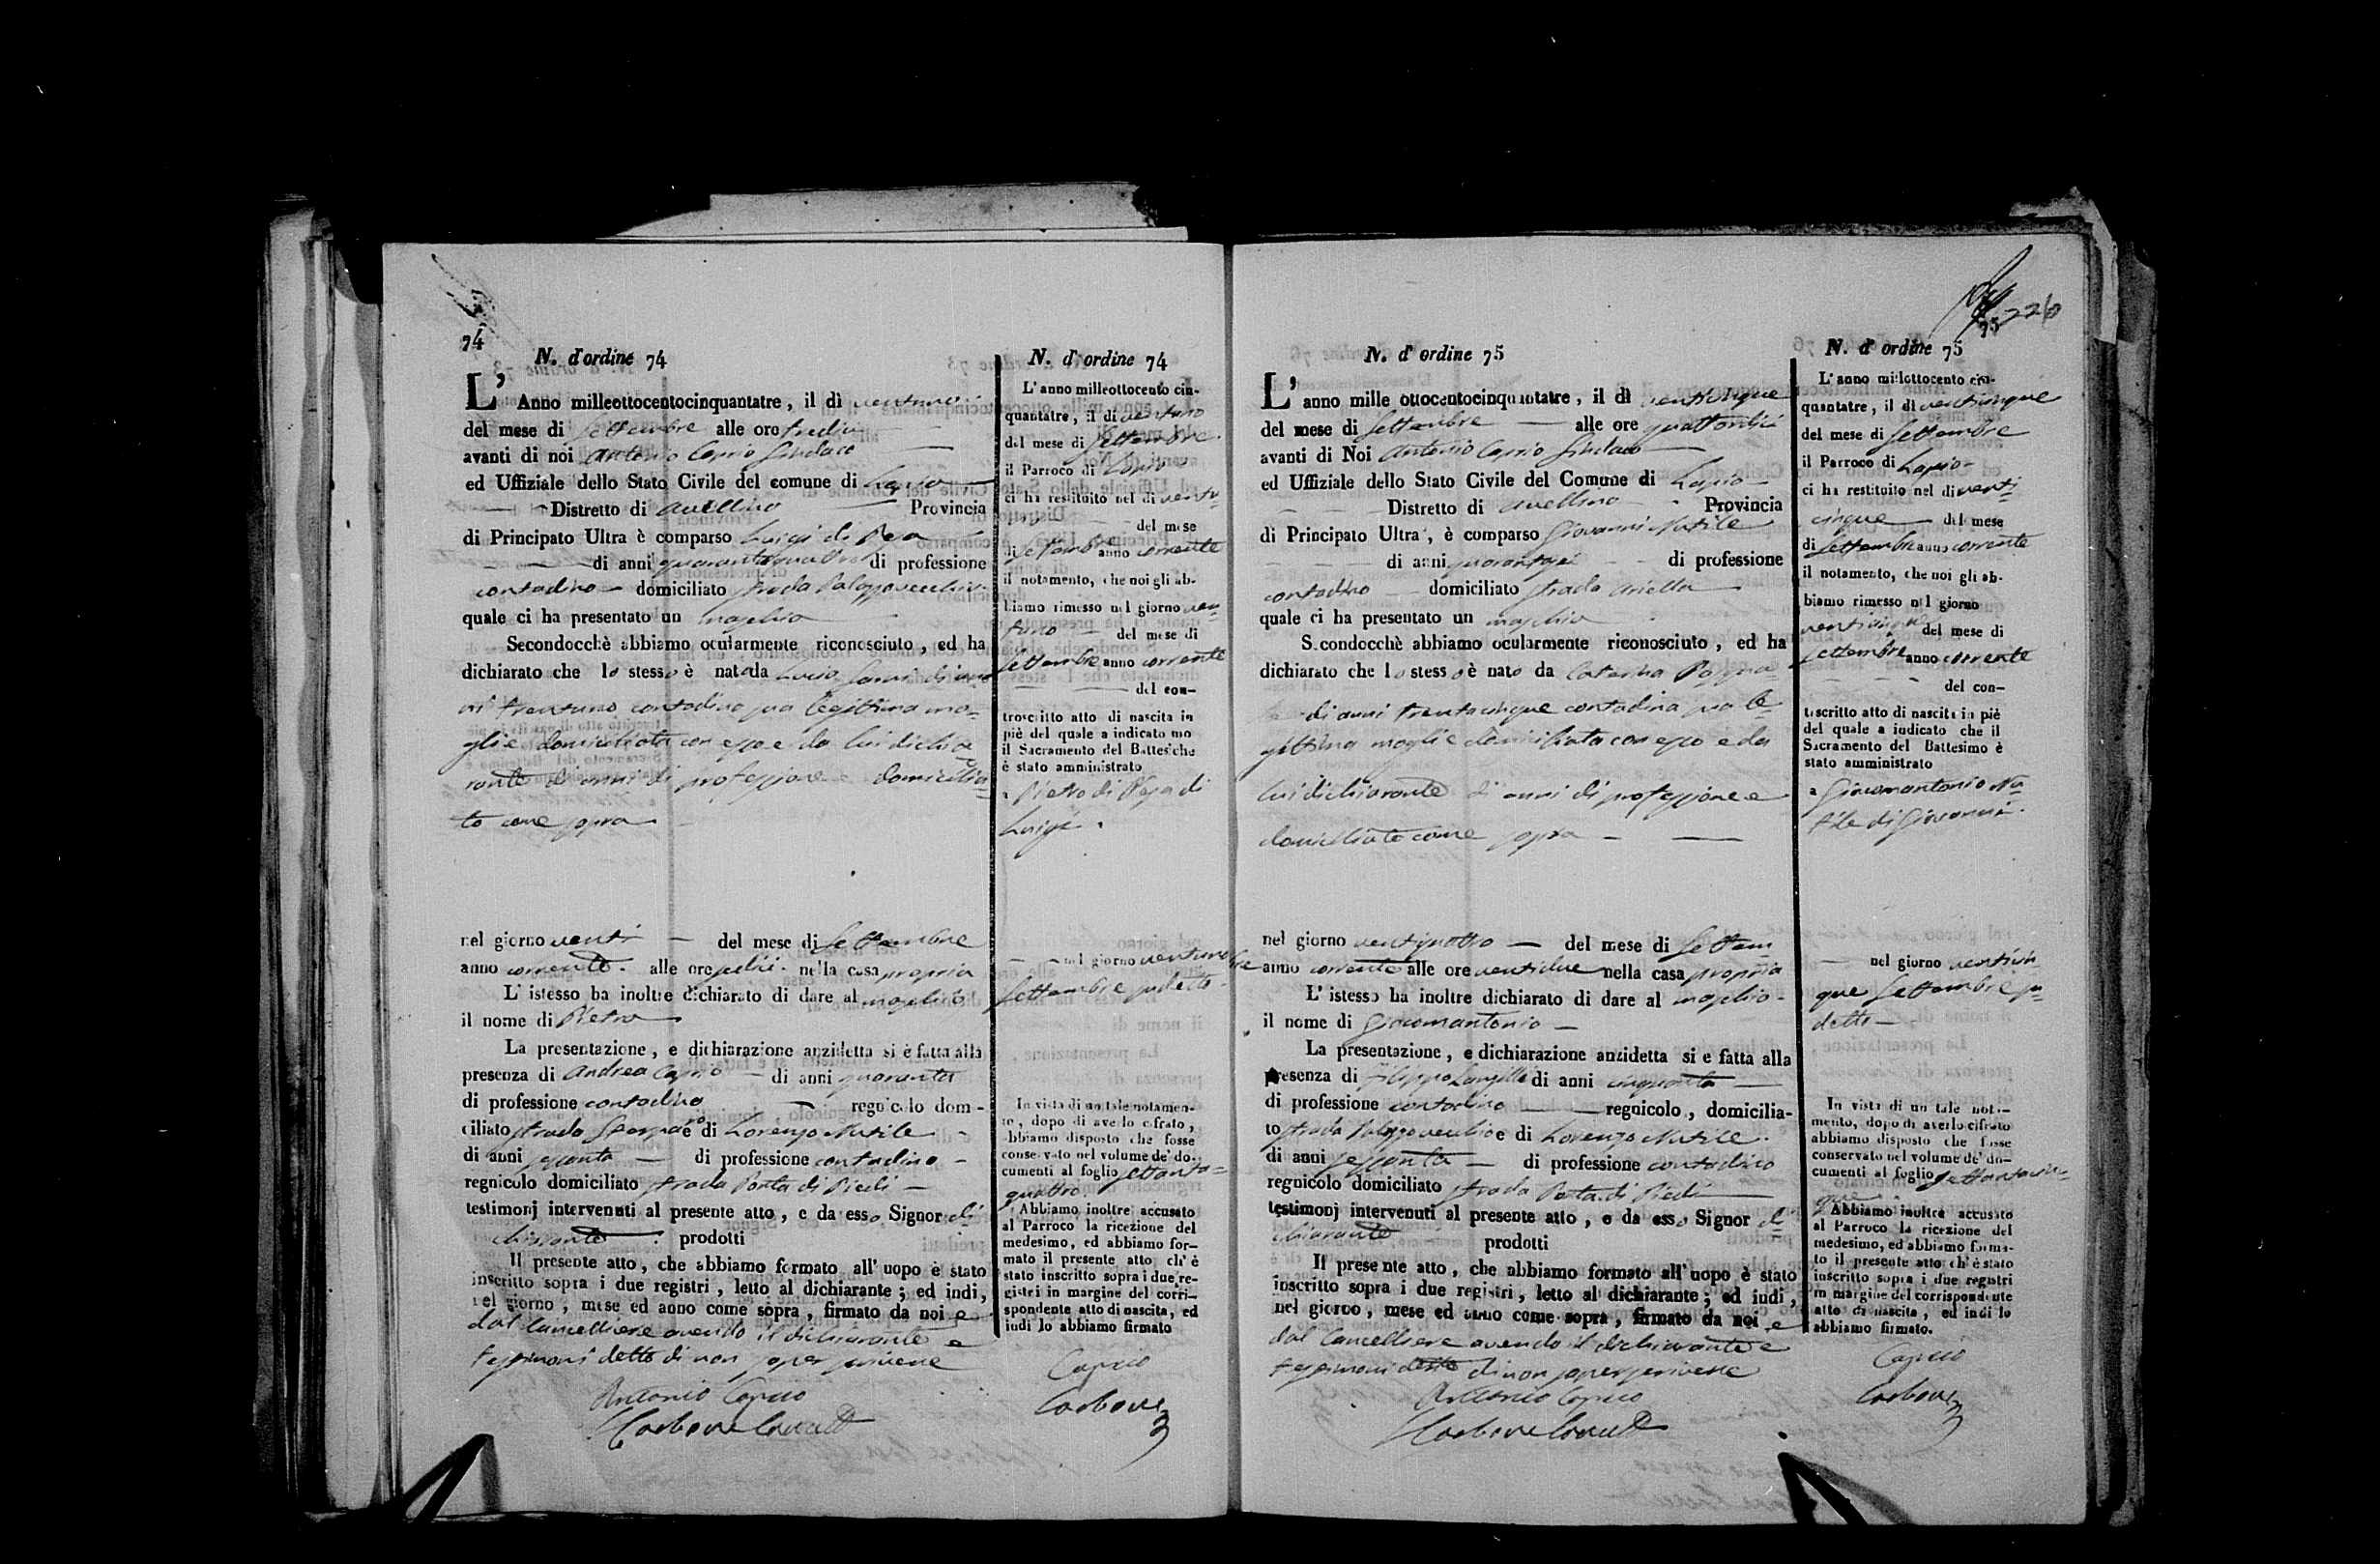 74
N. d'ordine 74
L' Anno milleottocentocinquantatre, il dì ventuno
del mese di Settembre alle ore tredici
avanti di noi Antonio Caprio Sindaco
ed Uffiziale dello Stato Civile del comune di Lapio
Distretto di Avellino Provincia
di Principato Ultra è comparso Luigi di
di anni quarantaquattro di professione
contadino domiciliato strada Palazzovecchio
quale ci ha presentato un maschio
Secondocchè abbiamo ocularmente riconosciuto, ed ha
dichiarato che lo stesso è nato da Luisa di an
ni trentuno contadina sua legittima mo=
glie domiciliata con esso e da lui dichia
rante di anni di professione e domicilia=
to come sopra
nel giorno venti del mese di Settembre
anno corrente alle ore sedici nella casa propria
L' istesso ha inoltre dichiarato di dare al maschio
il nome di Pietro
La presentazione, e dichiarazione anzidetta si è fatta alla
presenza di Andrea Caprio di anni quaranta
di professione contadino regnicolo dom-
ciliato strada e di Lorenzo Nutile
di anni sessanta di professione contadino
regnicolo domiciliato strada Porta di Piedi
testimonj intervenuti al presente atto, e da esso Signor di=
chiarante prodotti
Il presente atto, che abbiamo formato all' uopo è stato
inscritto sopra i due registri, letto al dichiarante; ed indi,
nel giorno, mese ed anno come sopra, firmato da noi e
dal Cancelliere avendo il dichiarante e
testimoni detto di non saper scrivere
Antonio Caprio
Carbone
N. d'ordine 74
L' anno milleottocento cin-
quantatre, il dì ventuno
del mese di Settembre
il Parroco di Lapio
ci ha restituito nel dì ventu=
del mese
di Settembre anno corrente
il notamento, che noi gli ab-
biamo rimesso nel giorno ven=
tuno del mese di
Settembre anno corrente
del con-
troscritto atto di nascita in
piè del quale a indicato
il Sacramento del
è stato amministrato
a Pietro di di
Luigi.
nel giorno ventuno
Settembre sudetto
In vista di un tale notamen-
to, dopo di averlo cifrato,
abbiamo disposto che fosse
conservato nel volume de' do-
cumenti al foglio settanta=
quattro
Abbiamo inoltre accusato
al Parroco la ricezione del
medesimo, ed abbiamo for-
mato il presente atto ch' è
stato inscritto sopra i due re-
gistri in margine del corri-
spondente atto di nascita, ed
indi lo abbiamo firmato
Caprio
Carbone
226
N. d' ordine 75
L' anno mille ottocentocinquantatre, il dì venticinque
del mese di Settembre alle ore quattordici
avanti di Noi Antonio Caprio Sindaco
ed Uffiziale dello Stato Civile del Comune di Lapio
Distretto di Avellino Provincia
di Principato Ultra, è comparso Giovanni Nutile
di anni quarantasei di professione
contadino domiciliato strada Ariella
quale ci ha presentato un maschio
Secondocchè abbiamo ocularmente riconosciuto, ed ha
dichiarato che lo stesso è nato da Caterina
di anni trentacinque contadina sua le
gittima moglie domiciliata con esso e da
lui dichiarante di anni di professione e
domiciliato come sopra
nel giorno ventiquattro del mese di Settem
bre anno corrente alle ore ventidue nella casa propria
L' istesso ha inoltre dichiarato di dare al maschio
il nome di Giacomantonio
La presentazione, e dichiarazione anzidetta si e fatta alla
presenza di Filippo di anni cinquanta
di professione contadino regnicolo, domicilia-
to strada Palazzovecchio e di Lorenzo Nutile
di anni sessanta di professione contadino
regnicolo domiciliato strada Porta di Piedi
testimonj intervenuti al presente atto, e da esso Signor di=
chiarante prodotti
Il presente atto, che abbiamo formato all' uopo è stato
inscritto sopra i due registri, letto al dichiarante; ed indi,
nel giorno, mese ed anno come sopra, firmato da noi e
dal Cancelliere avendo il dichiarante e
testimoni detto di non saper scrivere
Antonio Caprio
Carbone
N. d' ordine 75
L' anno millottocento cin-
quantatre, il dì venticinque
del mese di Settembre
il Parroco di Lapio
ci ha restituito nel dì venti=
cinque del mese
di Settembre anno corrente
il notamento, che noi gli ab-
biamo rimesso nel giorno
venticinque del mese di
Settembre anno corrente
del con-
troscritto atto di nascita in piè
del quale a indicato che il
Sacramento del Battesimo è
stato amministrato
a Giacomantonio Nu=
tile di Giovanni.
nel giorno venticin=
que Settembre su=
detto
In vista di un tale nota-
mento, dopo di averlo cifrato
abbiamo disposto che fosse
conservato nel volume de' do-
cumenti al foglio settantacin=
que
Abbiamo inoltre accusato
al Parroco la ricezione del
medesimo, ed abbiamo forma-
to il presente atto ch' è stato
inscritto sopra i due registri
in margine del corrispondente
atto di nascita, ed indi lo
abbiamo firmato.
Caprio
Carbone